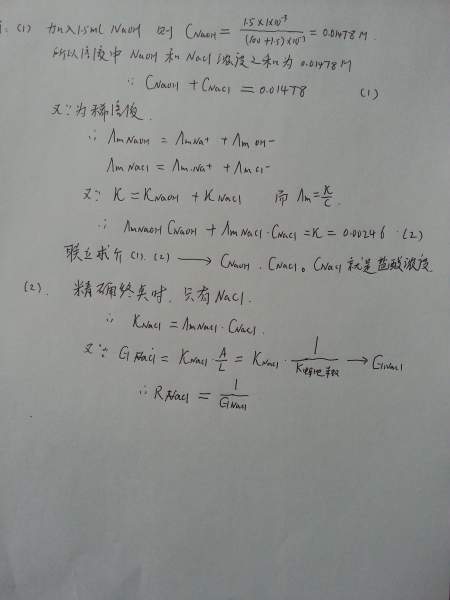 (1) 加入1.5ml NaOH 则 C_NaOH = 1.5×1×10⁻³/(100+1.5)×10⁻³ = 0.01478 M.
所以溶液中 NaOH 和 NaCl 浓度之和为 0.01478 M
∴ C_NaOH + C_NaCl = 0.01478 (1)
又∵为稀溶液.
∴ Λm NaOH = Λm Na⁺ + Λm OH⁻
Λm NaCl = Λm Na⁺ + Λm Cl⁻
又∵ K = K_NaOH + K_NaCl 而 Λm = K/C.
∴ Λm NaOH C_NaOH + Λm NaCl · C_NaCl = K = 0.00246 (2)
联立求介 (1). (2) → C_NaOH. C_NaCl。C_NaCl 就是盐酸浓度
(2). 精确终点时, 只有 NaCl.
∴ K_NaCl = Λm NaCl · C_NaCl.
又∵ G_NaCl = K_NaCl · A/L = K_NaCl · 1/K电池常数 → G_NaCl
∴ R_NaCl = 1/G_NaCl